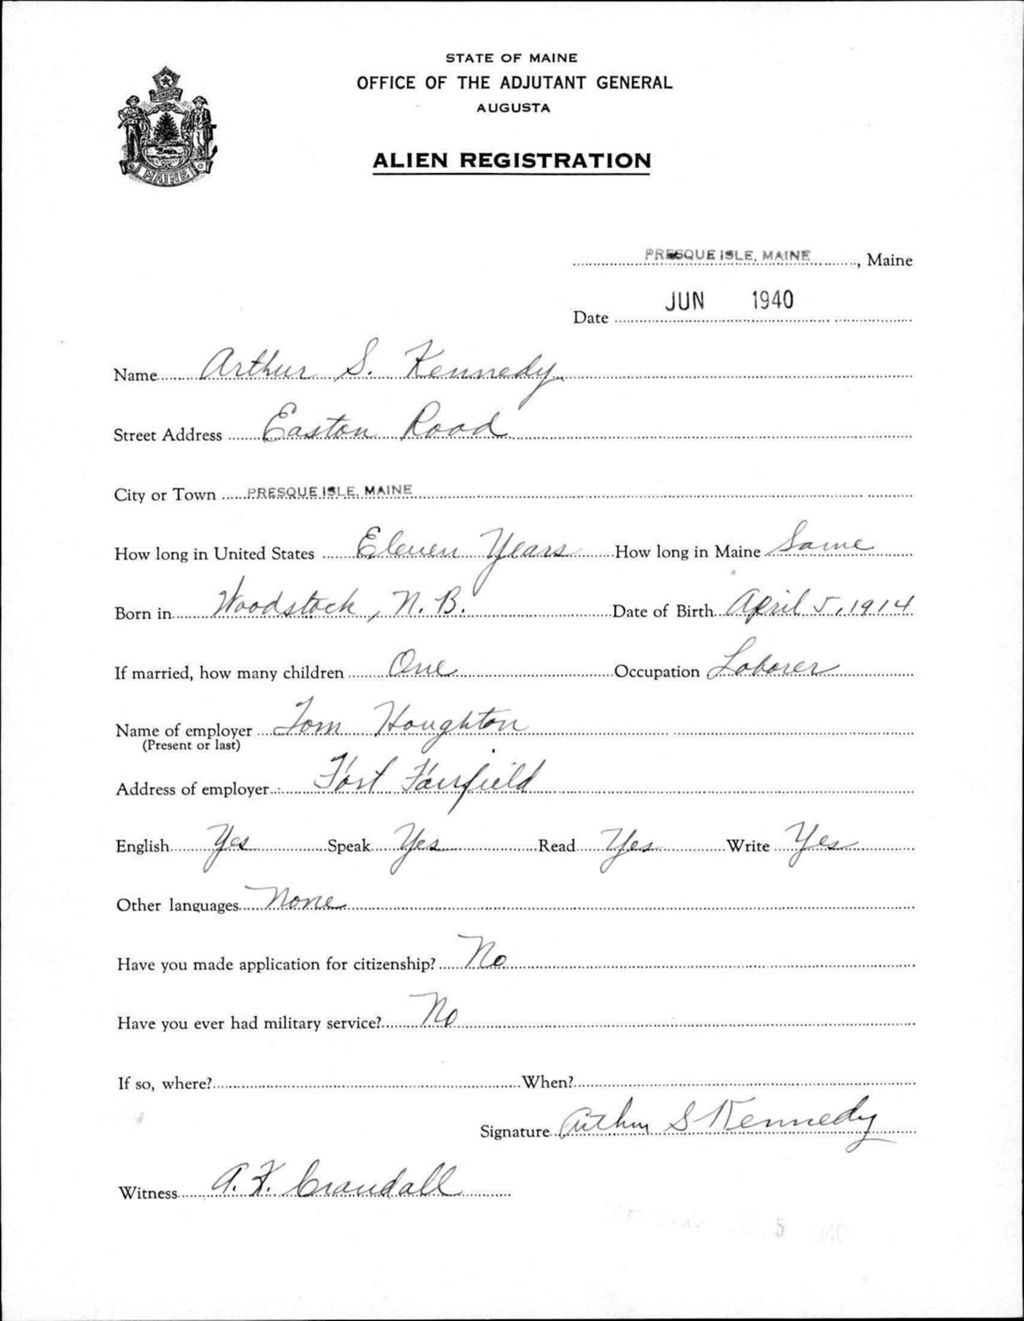 STATE OF MAINE
OFFICE OF THE ADJUTANT GENERAL
AUGUSTA
ALIEN REGISTRATION
MAINE
PRESQUE ISLE, MAINE, Maine
Date JUN 1940
Name Arthur S. Kennedy
Street Address Easton Road
City or Town PRESQUE ISLE, MAINE
How long in United States Eleven Years How long in Maine Same
Born in Woodstock, N.B. Date of Birth April 5, 1914
If married, how many children One Occupation Laborer
Name of employer Tom Houghton
(Present or last)
Address of employer Fort Fairfield
English Yes Speak Yes Read Yes Write Yes
Other languages None
Have you made application for citizenship? No
Have you ever had military service? No
If so, where? When?
Signature Arthur S Kennedy
Witness A. F. Crandall
5